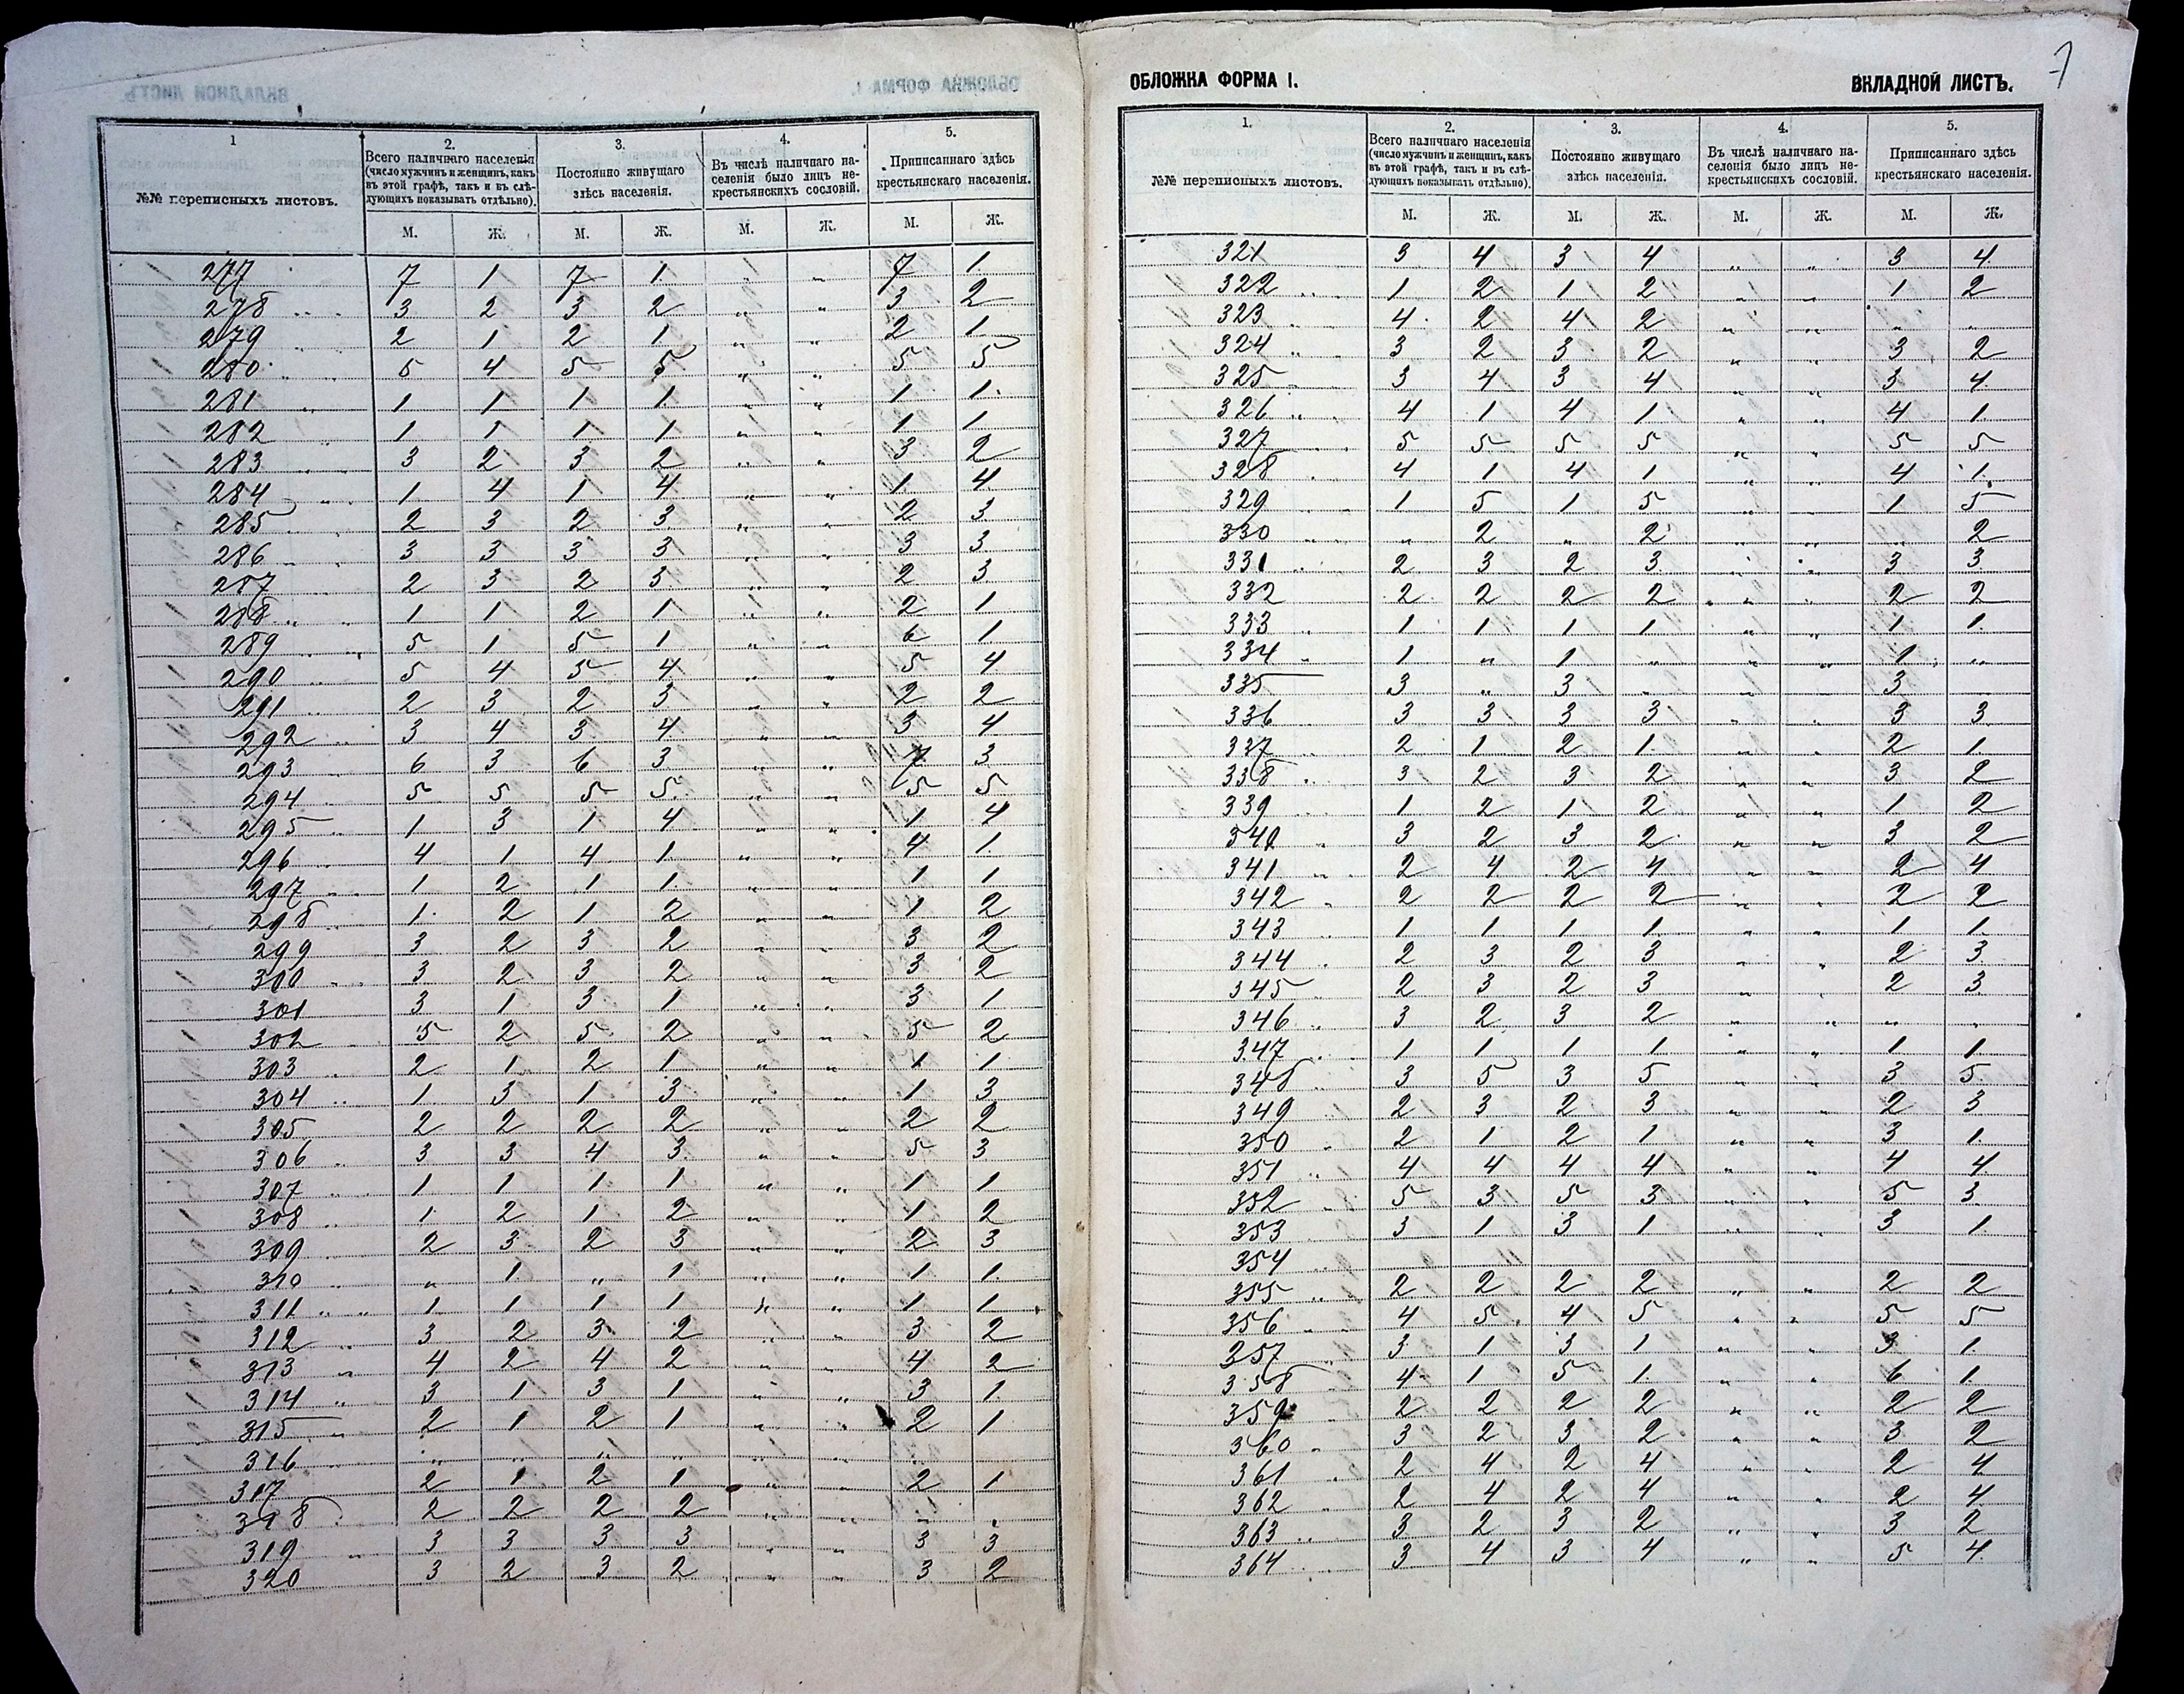 1
2.
3.
4.
5.
№№ переписныхъ листовъ.
Всего наличнаго населенія (число мужчинъ и женщинъ, какъ въ этой графѣ, такъ и въ слѣдующихъ показывать отдѣльно).
Постоянно живущаго здѣсь населенія.
Въ числѣ наличнаго населенія было лицъ некрестьянскихъ сословій.
Приписаннаго здѣсь крестьянскаго населенія.
М. Ж. М. Ж. М. Ж. М. Ж.
277 7 1 7 1 " " 7 1
278 3 2 3 2 " " 3 2
279 2 1 2 1 " " 2 1
280 5 4 5 5 " " 5 5
281 1 1 1 1 " " 1 1
282 1 1 1 1 " " 1 1
283 3 2 3 2 " " 3 2
284 1 4 1 4 " " 1 4
285 2 3 2 3 " " 2 3
286 3 3 3 3 " " 3 3
287 2 3 2 3 " " 2 3
288 1 1 2 1 " " 2 1
289 5 1 5 1 " " 6 1
290 5 4 5 4 " " 5 4
291 2 3 2 3 " " 2 2
292 3 4 3 4 " " 3 4
293 6 3 6 3 " " 7 3
294 5 5 5 5 " " 5 5
295 1 3 1 4 " " 1 4
296 4 1 4 1 " " 4 1
297 1 2 1 1 " " 1 1
298 1 2 1 2 " " 1 2
299 3 2 3 2 " " 3 2
300 3 2 3 2 " " 3 2
301 3 1 3 1 " " 3 1
302 5 2 5 2 " " 5 2
303 2 1 2 1 " " 1 1
304 1 3 1 3 " " 1 3
305 2 2 2 2 " " 2 2
306 3 3 4 3 " " 5 3
307 1 1 1 1 " " 1 1
308 1 2 1 2 " " 1 2
309 2 3 2 3 " " 2 3
310 " 1 " 1 " " 1 1
311 1 1 1 1 " " 1 1
312 3 2 3 2 " " 3 2
313 4 2 4 2 " " 4 2
314 3 1 3 1 " " 3 1
315 2 1 2 1 " " 2 1
316 " " " " " " "
317 2 1 2 1 " " 2 1
318 2 2 2 2 " " " "
319 3 3 3 3 " " 3 3
320 3 2 3 2 " " 3 2
7
ОБЛОЖКА ФОРМА I.
ВКЛАДНОЙ ЛИСТЪ.
1.
2.
3.
4.
5.
№№ переписныхъ листовъ.
Всего наличнаго населенія (число мужчинъ и женщинъ, какъ въ этой графѣ, такъ и въ слѣдующихъ показывать отдѣльно).
Постоянно живущаго здѣсь населенія.
Въ числѣ наличнаго населенія было лицъ некрестьянскихъ сословій.
Приписаннаго здѣсь крестьянскаго населенія.
М. Ж. М. Ж. М. Ж. М. Ж.
321 3 4 3 4 " " 3 4
322 1 2 1 2 " " 1 2
323 4 2 4 2 " " " "
324 3 2 3 2 " " 3 2
325 3 4 3 4 " " 3 4
326 4 1 4 1 " " 4 1
327 5 5 5 5 " " 5 5
328 4 1 4 1 " " 4 1
329 1 5 1 5 " " 1 5
330 " 2 " 2 " " " 2
331 2 3 2 3 " " 3 3
332 2 2 2 2 " " 2 2
333 1 1 1 1 " " 1 1
334 1 " 1 " " " 1 "
335 3 " 3 " " " 3
336 3 3 3 3 " " 3 3
337 2 1 2 1 " " 2 1
338 3 2 3 2 " " 3 2
339 1 2 1 2 " " 1 2
340 3 2 3 2 " " 3 2
341 2 4 2 4 " " 2 4
342 2 2 2 2 " " 2 2
343 1 1 1 1 " " 1 1
344 2 3 2 3 " " 2 3
345 2 3 2 3 " " 2 3
346 3 2 3 2 " " " "
347 1 1 1 1 " " 1 1
348 3 5 3 5 " " 3 5
349 2 3 2 3 " " 2 3
350 2 1 2 1 " " 3 1
351 4 4 4 4 " " 4 4
352 5 3 5 3 " " 5 3
353 3 1 3 1 " " 3 1
354
355 2 2 2 2 " " 2 2
356 4 5 4 5 " " 5 5
357 3 1 3 1 " " 3 1
358 4 1 5 1 " " 6 1
359 2 2 2 2 " " 2 2
360 3 2 3 2 " " 3 2
361 2 4 2 4 " " 2 4
362 2 4 2 4 " " 2 4
363 3 2 3 2 " " 3 2
364 3 4 3 4 " " 5 4